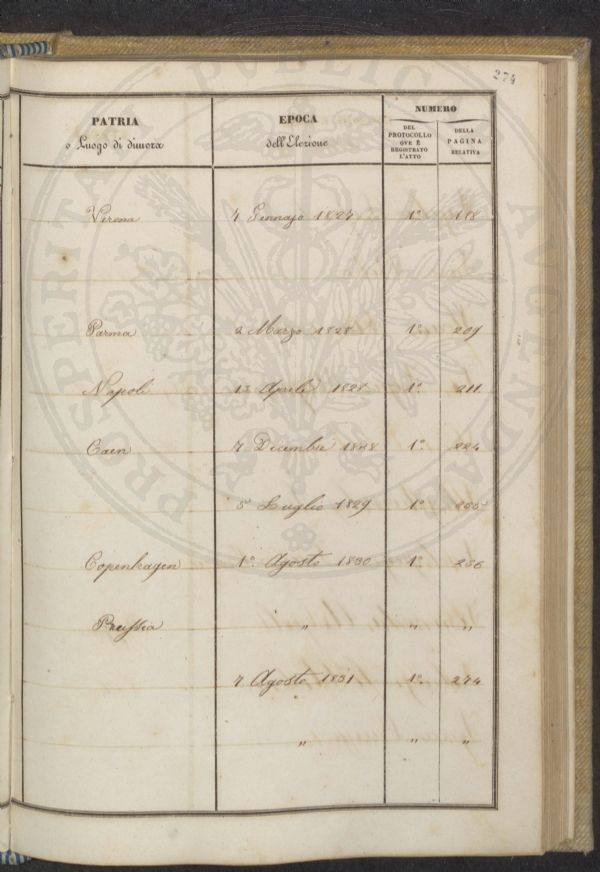 274
PATRIA
o Luogo di dimora
EPOCA
dell'Elezione
NUMERO
DEL
PROTOCOLLO
OVE È
REGISTRATO
L'ATTO
DELLA
PAGINA
RELATIVA
Verona 4 Gennajo 1824 1° 118
Parma 2 Marzo 1828 1° 209
Napoli 13 Aprile 1828 1° 211
Caen 7 Dicembre 1828 1° 224
5 Luglio 1829 1°
Copenhagen 1° Agosto 1830 1° 256
Prussia " " "
7 Agosto 1831 1° 274
" " "
PROSPERITATI PUBLICAE AUGENDAE